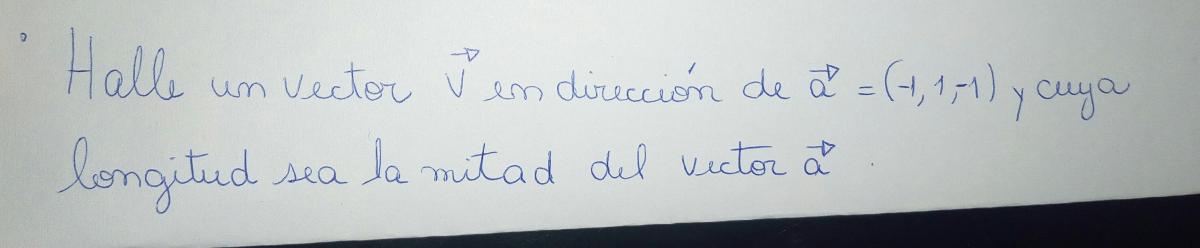 Halle un vector v⃗ en dirección de a⃗ = (-1, 1, -1) y cuya
longitud sea la mitad del vector a⃗.